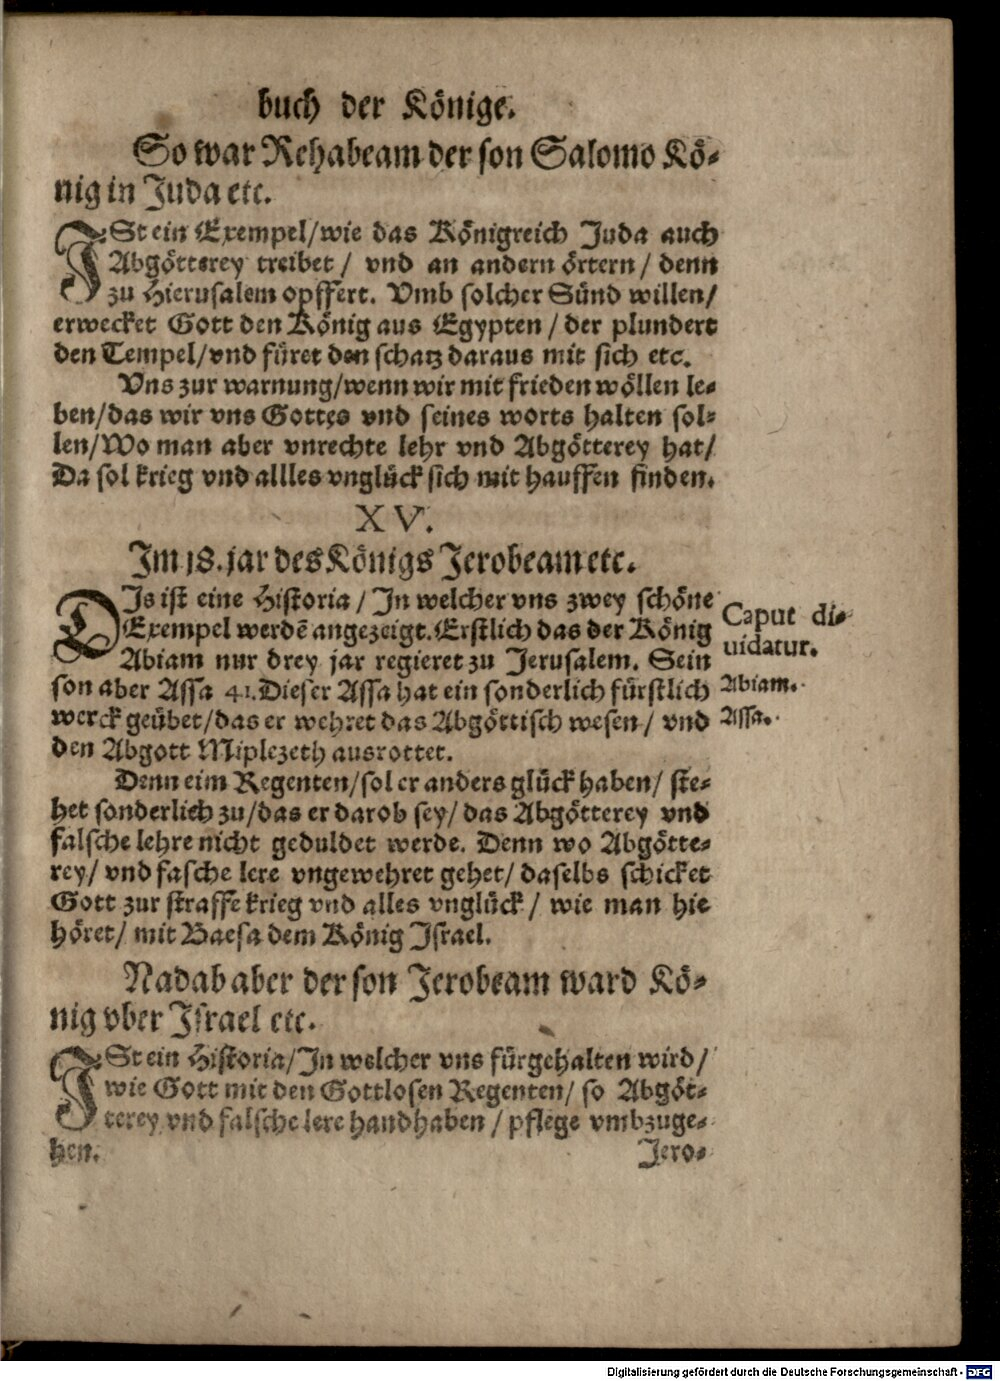 buch der Könige.
So war Rehabeam der son Salomo Kö-
nig in Juda etc.
ISt ein Exempel/wie das Königreich Juda auch
Abgötterey treibet/ vnd an andern örtern/ denn
zu Hierusalem opffert. Vmb solcher Sünd willen/
erwecket Gott den König aus Egypten/ der plundert
den Tempel/vnd füret den schatz daraus mit sich etc.
Vns zur warnung/wenn wir mit frieden wöllen le-
ben/das wir vns Gottes vnd seines worts halten sol-
len/Wo man aber vnrechte lehr vnd Abgötterey hat/
Da sol krieg vnd allles vnglück sich mit hauffen finden.
XV.
Im 18. jar des Königs Jerobeam etc.
DIs ist eine Historia/ In welcher vns zwey schöne
Exempel werdē angezeigt. Erstlich das der König
Abiam nur drey jar regieret zu Jerusalem. Sein
son aber Assa 41. Dieser Assa hat ein sonderlich fürstlich
werck geübet/das er wehret das Abgöttisch wesen/ vnd
den Abgott Miplezeth ausrottet.
Caput di-
uidatur.
Abiam.
Assa.
Denn eim Regenten/sol er anders glück haben/ ste-
het sonderlich zu/das er darob sey/ das Abgötterey vnd
falsche lehre nicht geduldet werde. Denn wo Abgötte-
rey/ vnd fasche lere vngewehret gehet/ daselbs schicket
Gott zur straffe krieg vnd alles vnglück/ wie man hie
höret/ mit Baesa dem König Israel.
Nadab aber der son Jerobeam ward Kö-
nig vber Israel etc.
ISt ein Historia/In welcher vns fürgehalten wird/
wie Gott mit den Gottlosen Regenten/ so Abgöt-
terey vnd falsche lere handhaben/ pflege vmbzuge-
hen.
Jero-
Digitalisierung gefördert durch die Deutsche Forschungsgemeinschaft - DFG